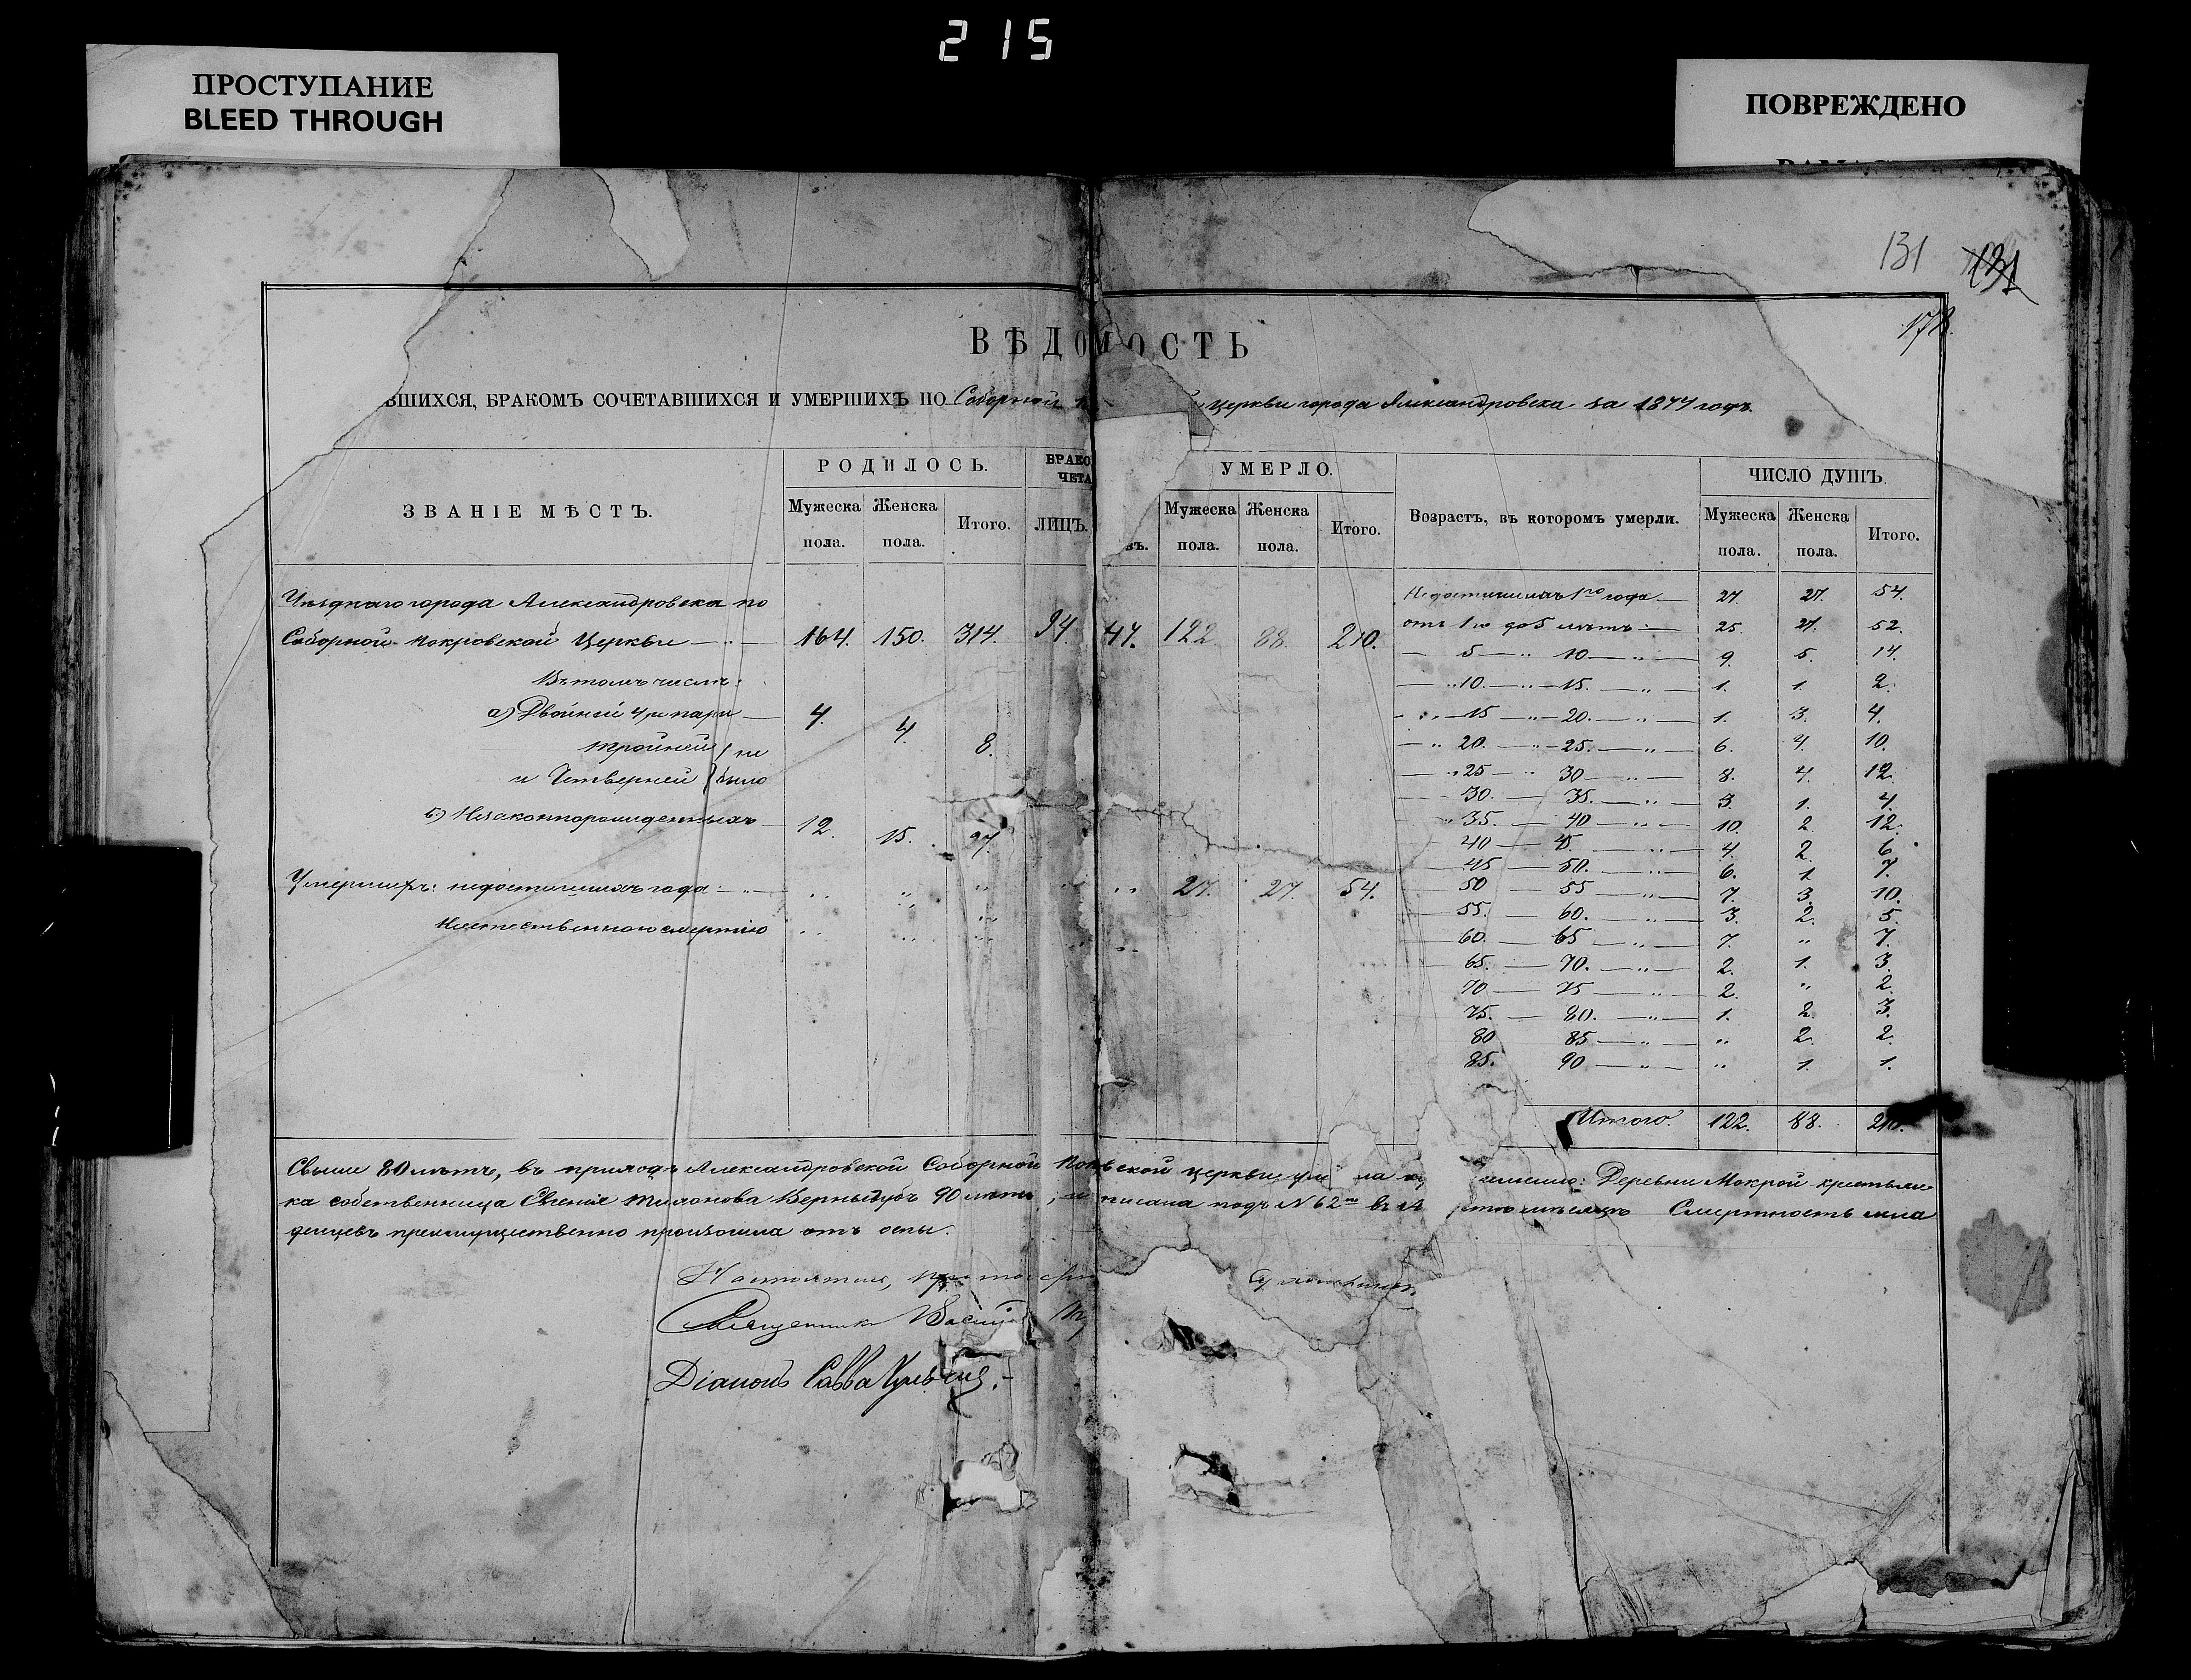 215
ПРОСТУПАНИЕ
BLEED THROUGH
ПОВРЕЖДЕНО
131 131
ВѢДОМОСТЬ
ВШИХСЯ, БРАКОМЪ СОЧЕТАВШИХСЯ И УМЕРШИХЪ ПО Соборной церкви города Александровска за 1877 годъ.
ЗВАНІЕ МѢСТЪ. РОДИЛОСЬ. БРАКО УМЕРЛО. Возрастъ, въ которомъ умерли. ЧИСЛО ДУШЪ.
ЧЕТА
Мужеска пола. Женска пола. Итого. ЛИЦЪ. въ. Мужеска пола. Женска пола. Итого. Мужеска пола. Женска пола. Итого.
Уѣзднаго города Александровска по
Соборной Покровской Церкви — „ — 164. 150. 314. 94. 47. 122. 88. 210.
Въ томъ числѣ:
а) Двойней 4ре пары — 4. 4. 8.
тройней } не
и Четверней } было
б) Незаконнорожденныхъ 12. 15. 27.
Умершихъ: недостигшихъ года: — „ „ „ „ „ 27. 27. 54.
Неестественною смертію „ „ „ „ „
Недостигшихъ 1го года — 27. 27. 54.
отъ 1го до 5 лѣтъ: — 25. 27. 52.
— 5 — „ 10 — „ — 9. 5. 14.
— „ 10. — „ — 15. — „ — 1. 1. 2.
„ — 15 — „ — 20. — „ — 1. 3. 4.
— „ 20. — „ — 25. — „ — 6. 4. 10.
— „ 25 — „ 30 — „ — 8. 4. 12.
30. — 35. — „ — 3. 1. 4.
„ 35. — 40 — „ — 10. 2. 12.
40 — 45. — „ — 4. 2. 6.
45 — 50. — „ — 6. 1. 7.
50 — 55 — „ — 7. 3. 10.
55. — 60. — „ — 3. 2. 5.
60. — 65 — „ — 7. „ 7.
65. — 70. — „ — 2. 1. 3.
70 — 75 — „ — 2. „ 2.
75. — 80. — „ — 1. 2. 3.
80 85 — „ — „ 2. 2.
85. 90 — „ — „ 1. 1.
Итого. 122. 88. 210.
Свыше 80 лѣтъ, въ приходѣ Александровской Соборной церкви Деревни Мокрой крестьян
ка собственница 90 лѣтъ, писана подъ № 62м въ Смертность мла
денцевъ преимущественно произошла отъ оспы.
Настоятель,
Священникъ
Діаконъ Савва